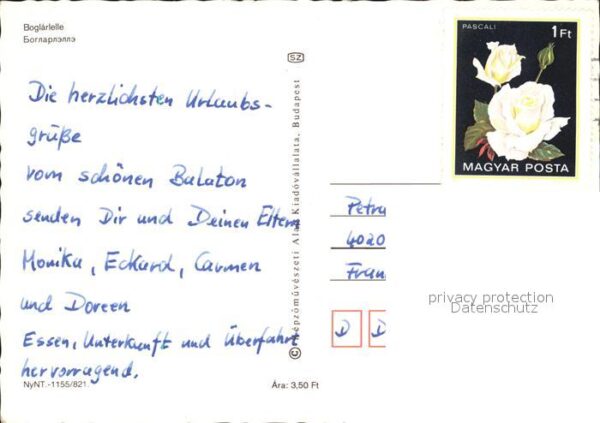 Boglárlelle
Богларлэллэ
Die herzlichsten Urlaubs-
grüße
vom schönen Balaton
senden Dir und Deinen Eltern
Monika, Eckard, Carmen
und Doreen
Essen, Unterkunft und Überfahrt
hervorragend.
NyNT.-1155/821.
Ára: 3,50 Ft
SZ
© Képzőművészeti Alap Kiadóvállalata, Budapest
PASCALI
1 Ft
MAGYAR POSTA
Petra
4020
Fran
D D
privacy protection
Datenschutz